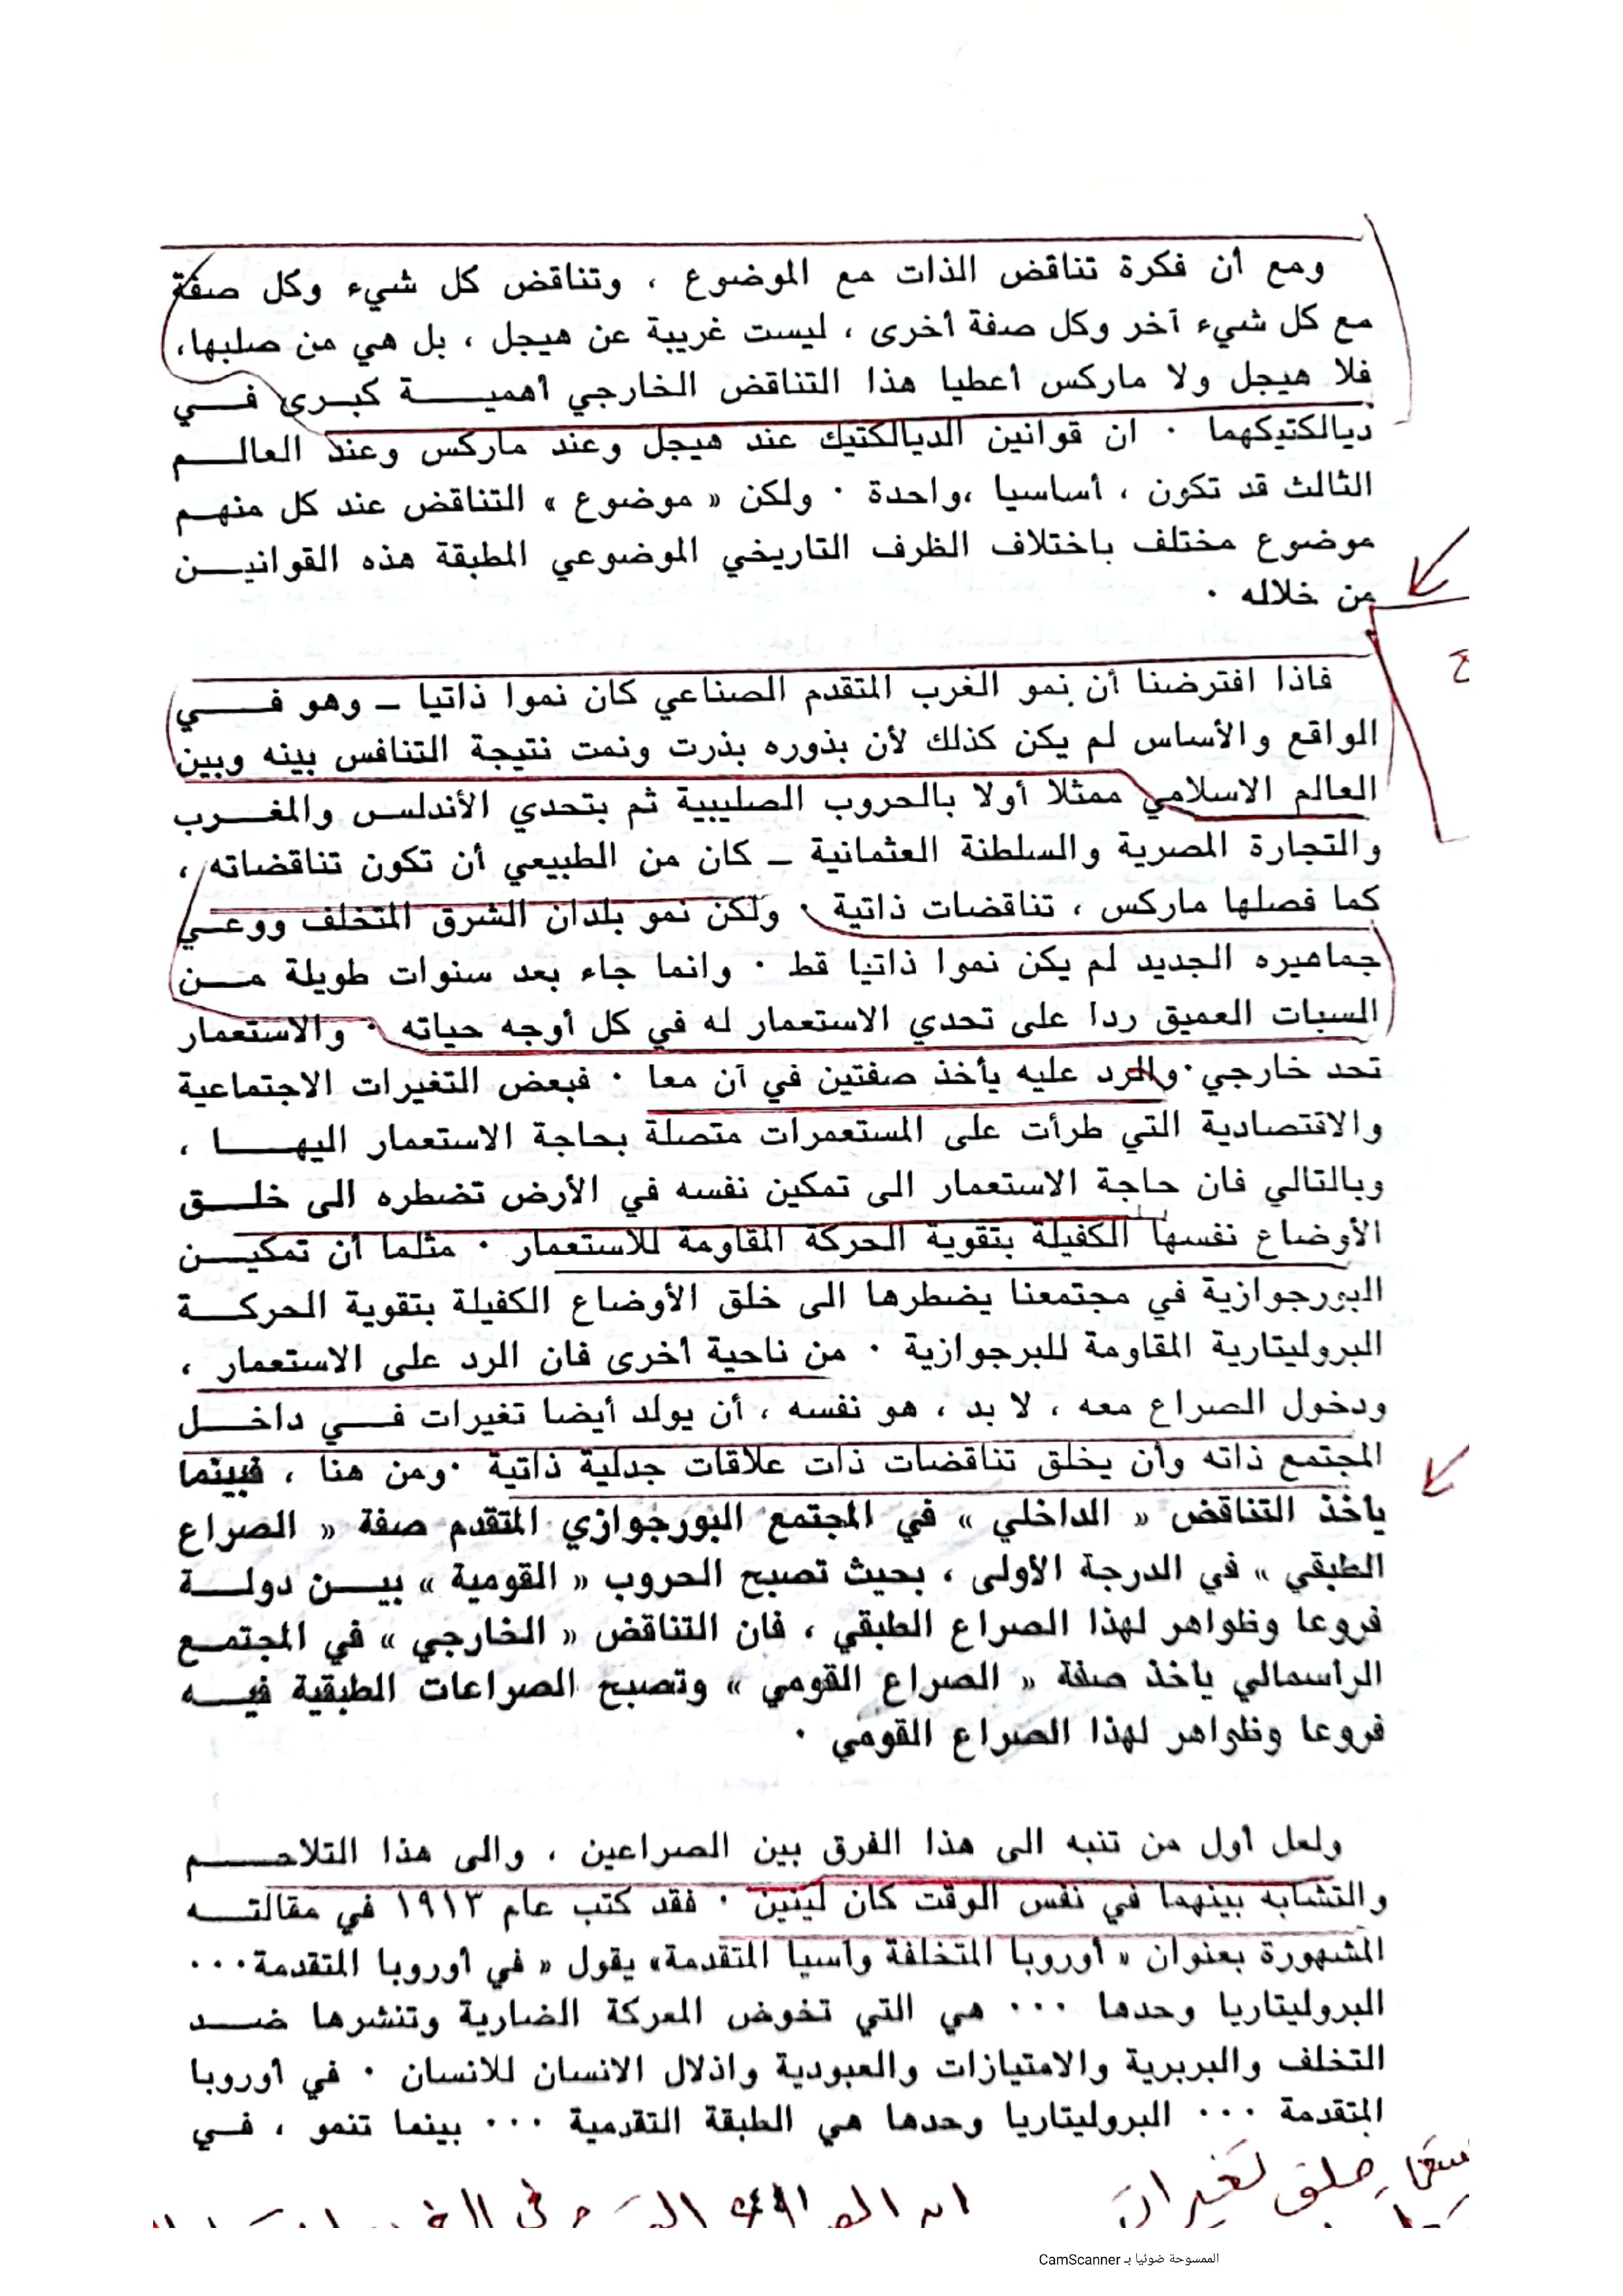 ومع أن فكرة تناقض الذات مع الموضوع ، وتناقض كل شيء وكل صفة
مع كل شيء آخر وكل صفة أخرى ، ليست غريبة عن هيجل ، بل هي من صلبها،
فلا هيجل ولا ماركس أعطيا هذا التناقض الخارجي أهمية كبرى في
ديالكتيكهما . ان قوانين الديالكتيك عند هيجل وعند ماركس وعند العالم
الثالث قد تكون ، أساسيا ،واحدة . ولكن « موضوع » التناقض عند كل منهم
موضوع مختلف باختلاف الظرف التاريخي الموضوعي المطبقة هذه القوانين
من خلاله .
فاذا افترضنا أن نمو الغرب المتقدم الصناعي كان نموا ذاتيا – وهو في
الواقع والأساس لم يكن كذلك لأن بذوره بذرت ونمت نتيجة التنافس بينه وبين
العالم الاسلامي ممثلا أولا بالحروب الصليبية ثم بتحدي الأندلس والمغرب
والتجارة المصرية والسلطنة العثمانية – كان من الطبيعي أن تكون تناقضاته ،
كما فصلها ماركس ، تناقضات ذاتية . ولكن نمو بلدان الشرق المتخلف ووعي
جماهيره الجديد لم يكن نموا ذاتيا قط . وانما جاء بعد سنوات طويلة من
السبات العميق ردا على تحدي الاستعمار له في كل أوجه حياته . والاستعمار
تحد خارجي. والرد عليه يأخذ صفتين في آن معا . فبعض التغيرات الاجتماعية
والاقتصادية التي طرأت على المستعمرات متصلة بحاجة الاستعمار اليها ،
وبالتالي فان حاجة الاستعمار الى تمكين نفسه في الأرض تضطره الى خلق
الأوضاع نفسها الكفيلة بتقوية الحركة المقاومة للاستعمار . مثلما أن تمكين
البورجوازية في مجتمعنا يضطرها الى خلق الأوضاع الكفيلة بتقوية الحركة
البروليتارية المقاومة للبرجوازية . من ناحية أخرى فان الرد على الاستعمار ،
ودخول الصراع معه ، لا بد ، هو نفسه ، أن يولد أيضا تغيرات في داخل
المجتمع ذاته وأن يخلق تناقضات ذات علاقات جدلية ذاتية .ومن هنا ، فبينما
يأخذ التناقض « الداخلي » في المجتمع البورجوازي المتقدم صفة « الصراع
الطبقي » في الدرجة الأولى ، بحيث تصبح الحروب « القومية » بين دولة
فروعا وظواهر لهذا الصراع الطبقي ، فان التناقض « الخارجي » في المجتمع
الراسمالي يأخذ صفة « الصراع القومي » وتصبح الصراعات الطبقية فيه
فروعا وظواهر لهذا الصراع القومي .
ولعل أول من تنبه الى هذا الفرق بين الصراعين ، والى هذا التلاحم
والتشابه بينهما في نفس الوقت كان لينين . فقد كتب عام ١٩١٣ في مقالته
المشهورة بعنوان « أوروبا المتخلفة وآسيا المتقدمة» يقول « في أوروبا المتقدمة...
البروليتاريا وحدها ... هي التي تخوض المعركة الضارية وتنشرها ضد
التخلف والبربرية والامتيازات والعبودية واذلال الانسان للانسان . في أوروبا
المتقدمة ... البروليتاريا وحدها هي الطبقة التقدمية ... بينما تنمو ، في
خلق تغيرات
الممسوحة ضوئيا بـ CamScanner